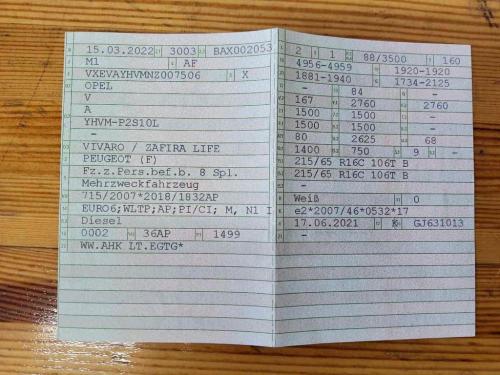 15.03.2022 3003 BAX002053
M1 AF
VXEVAYHVMNZ007506 X
OPEL
V
A
YHVM-P2S10L
-
VIVARO / ZAFIRA LIFE
PEUGEOT (F)
Fz.z.Pers.bef.b. 8 Spl.
Mehrzweckfahrzeug
715/2007*2018/1832AP
EURO6;WLTP;AP;PI/CI; M, N1 I
Diesel
0002 36AP 1499
WW.AHK LT.EGTG*
2 1 88/3500 160
4956-4959 1920-1920
1881-1940 1734-2125
- 84 -
167 2760 2760
1500 1500 -
1500 1500 -
80 2625 68
1400 750 9 -
215/65 R16C 106T B
215/65 R16C 106T B
-
Weiß 0
e2*2007/46*0532*17
17.06.2021 K GJ631013
-